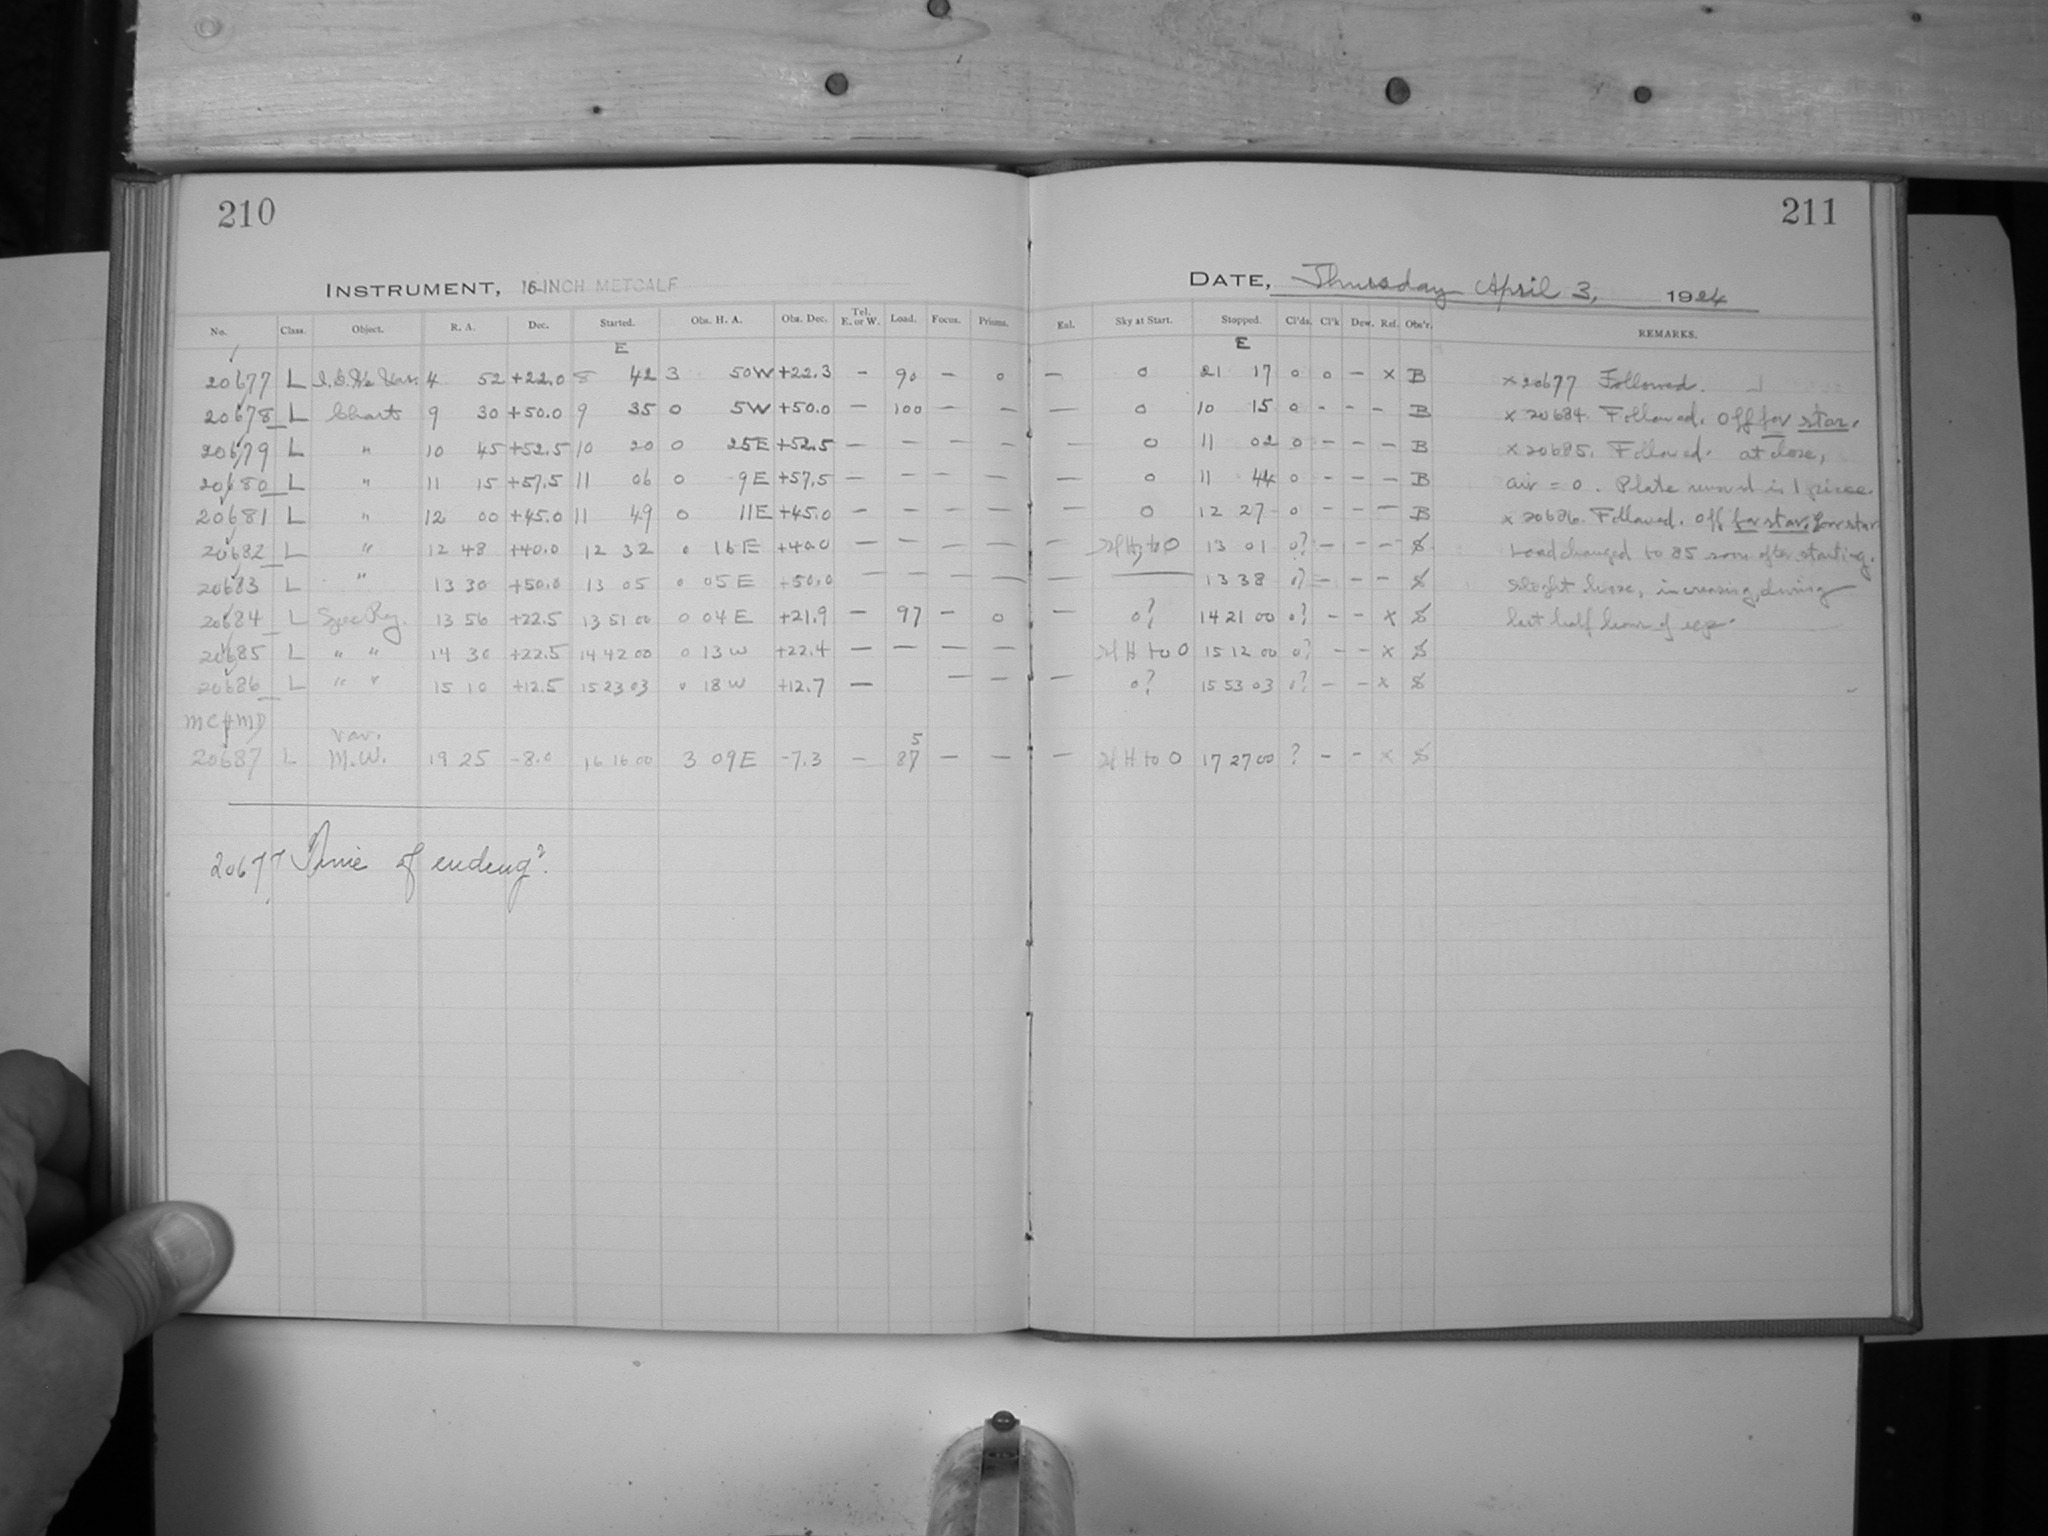 210
INSTRUMENT, 16-INCH METCALF
No. Class. Object. R. A. Dec. Started. Obs. H. A. Obs. Dec. Tel. E. or W. Load. Focus. Prisms.
E
20677 L 4 52 +22.0 8 42 3 50W +22.3 — 90 — 0
20678 L Chart 9 30 +50.0 9 35 0 5W +50.0 — 100 — —
20679 L " 10 45 +52.5 10 20 0 25E +52.5 — — — —
20680 L " 11 15 +57.5 11 06 0 9E +57.5 — — — —
20681 L " 12 00 +45.0 11 49 0 11E +45.0 — — — —
20682 L " 12 48 +40.0 12 32 0 16E +40.0 — — — —
20683 L " 13 30 +50.0 13 05 0 05E +50.0 — — — —
20684 L Spec Reg. 13 56 +22.5 13 51 00 0 04E +21.9 — 97 — 0
20685 L " " 14 30 +22.5 14 42 00 0 13W +22.4 — — — —
20686 L " " 15 10 +12.5 15 23 03 0 18W +12.7 — — —
MC & MD
var.
5
20687 L M.W. 19 25 -8.0 16 16 00 3 09E -7.3 — 87 — —
20677 Time of ending?
211
DATE, Thursday April 3, 1924
Enl. Sky at Start. Stopped. Cl'ds. Cl'k Dew. Ref. Obs'r. REMARKS.
E
— 0 21 17 0 0 — x B x 20677 Followed.
— 0 10 15 0 - - - B x 20684. Followed. Off for star.
— 0 11 02 0 - - - B x 20685. Followed. at close,
— 0 11 44 0 - - - B air = 0. Plate in 1 piece.
— 0 12 27 0 - - — B x 20686. Followed. Off for star, for star
— H to 0 13 01 0? - - - S Load changed to 85 soon after starting.
— — 13 38 0? - - - S Slight haze, increasing during
— 0? 14 21 00 0? - - x S last half hour of exp.
H to 0 15 12 00 0? - - x S
— 0? 15 53 03 0? - - x S
— H to 0 17 27 00 ? - - x S